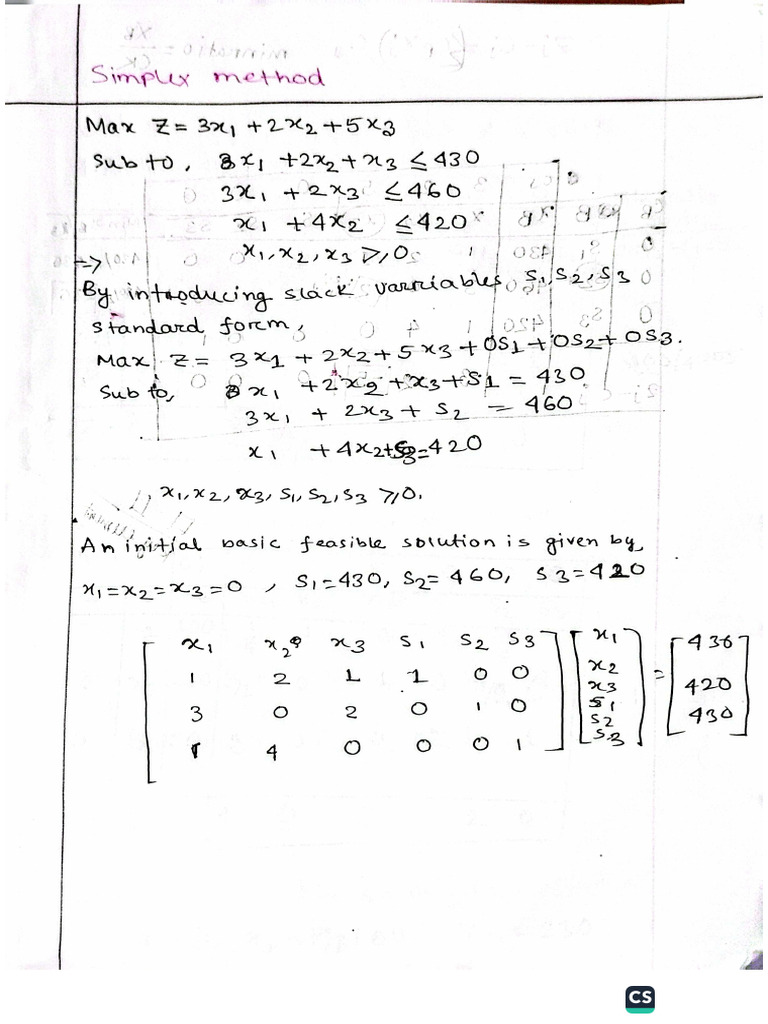 Simplex method
Max Z = 3x₁ + 2x₂ + 5x₃
Sub to, x₁ + 2x₂ + x₃ ≤ 430
3x₁ + 2x₃ ≤ 460
x₁ + 4x₂ ≤ 420
x₁, x₂, x₃ ≥, 0
=>
By introducing slack varriables S₁, S₂, S₃
standard form,
Max Z = 3x₁ + 2x₂ + 5x₃ + 0S₁ + 0S₂ + 0S₃.
Sub to, x₁ + 2x₂ + x₃ + S₁ = 430
3x₁ + 2x₃ + S₂ = 460
x₁ + 4x₂ + S₃ = 420
x₁, x₂, x₃, S₁, S₂, S₃ ≥, 0.
An initial basic feasible solution is given by,
x₁ = x₂ = x₃ = 0 , S₁ = 430, S₂ = 460, S₃ = 420
x₁ x₂ x₃ S₁ S₂ S₃ x₁ 430
1 2 1 1 0 0 x₂ = 420
3 0 2 0 1 0 x₃ S₁ 430
1 4 0 0 0 1 S₂ S₃
CS